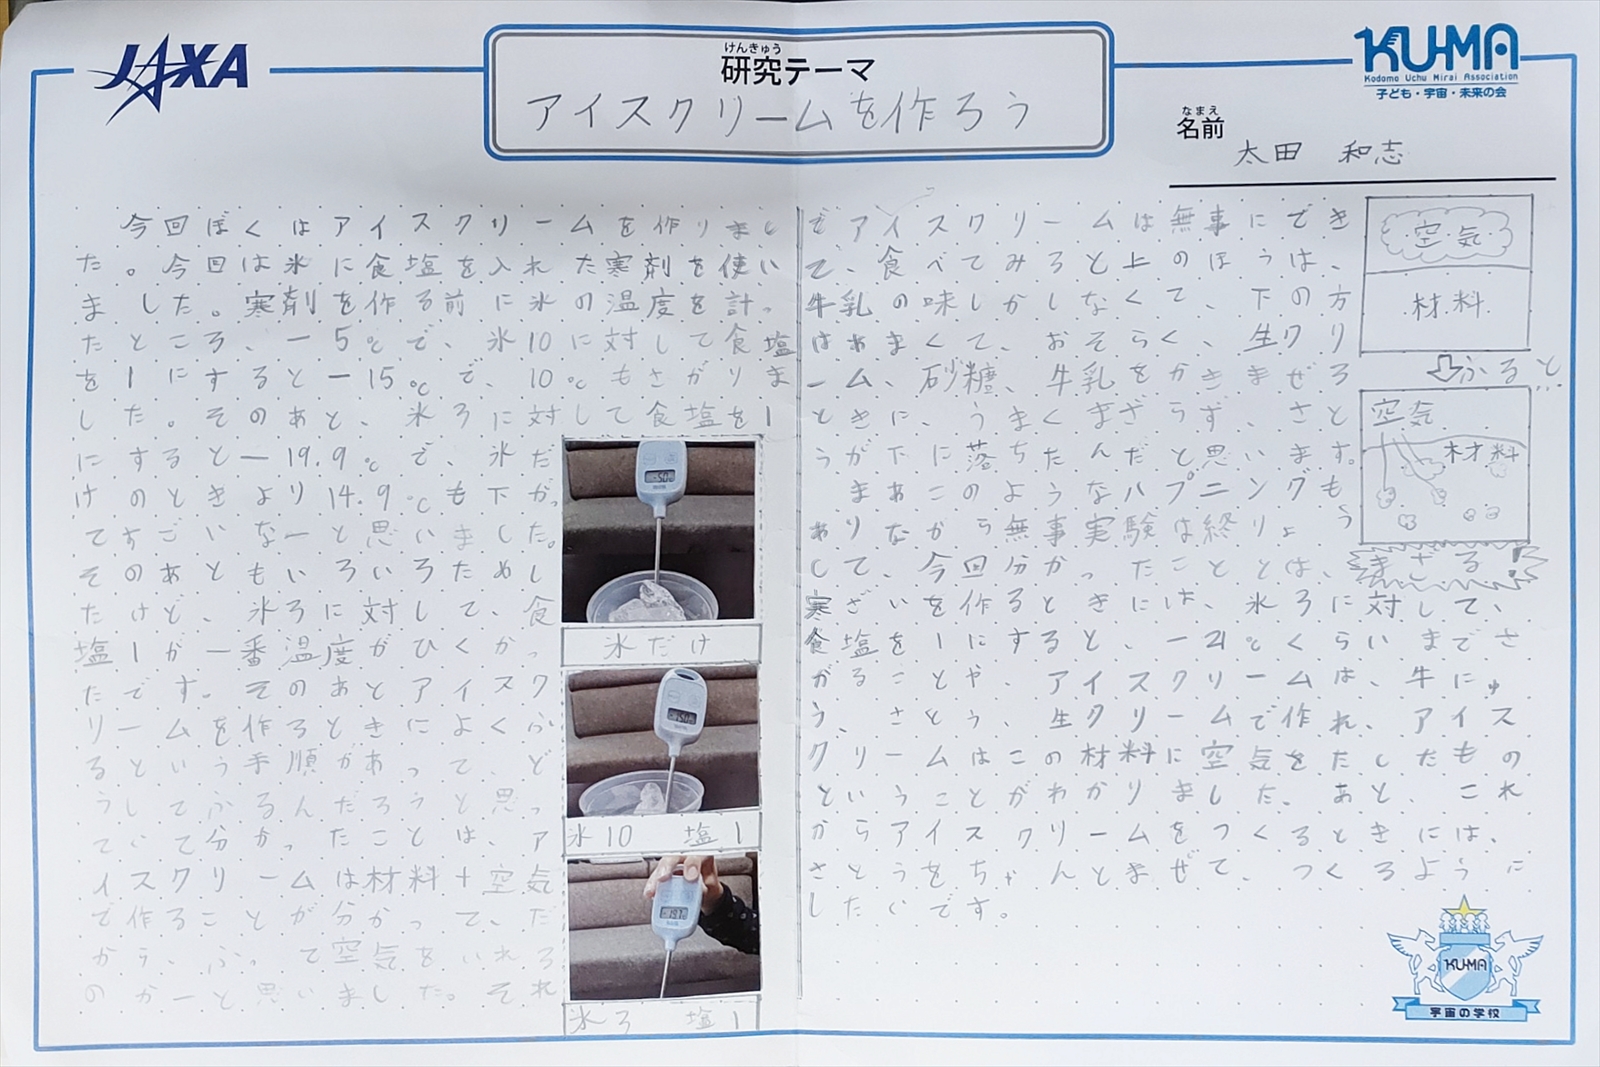 JAXA
けんきゅう
研究テーマ
アイスクリームを作ろう
KUMA
Kodomo Uchu Mirai Association
子ども・宇宙・未来の会
なまえ
名前
太田 和志
今回ぼくはアイスクリームを作りまし
た。今回は氷に食塩を入れた寒剤を使い
ました。寒剤を作る前に氷の温度を計っ
たところ、-5℃で、氷10に対して食塩
を1にすると-15℃で、10℃もさがりま
した。そのあと、氷3に対して食塩を1
にすると-19.9℃で、氷だ
けのときより14.9℃も下がっ
てすごいなーと思いました。
そのあともいろいろためし
たけど、氷3に対して、食
塩1が一番温度がひくかっ
たです。そのあとアイスク
リームを作るときによくふ
るという手順があって、ど
うしてふるんだろうと思っ
ていて分かったことは、ア
イスクリームは材料+空気
で作ることが分かって、だ
から、ふって空気をいれる
のかーと思いました。それ
氷だけ
氷10 塩1
氷3 塩1
でアイスクリームは無事にでき
て、食べてみると上のほうは、
牛乳の味しかしなくて、下の方
はあまくて、おそらく、生クリ
ーム、砂糖、牛乳をかきまぜる
ときに、うまくまざらず、さと
うが下に落ちたんだと思います。
まあこのようなハプニングも
ありながら無事実験は終りょう
して、今回分かったこととは、
寒ざいを作るときには、氷3に対して、
食塩を1にすると、-21℃くらいまでさ
がることや、アイスクリームは、牛にゅ
う、さとう、生クリームで作れ、アイス
クリームはこの材料に空気をたしたもの
ということがわかりました。あと、これ
からアイスクリームをつくるときには、
さとうをちゃんとまぜて、つくるように
したいです。
空気
材料
ふると…
空気
材料
まざる
KUMA
宇宙の学校